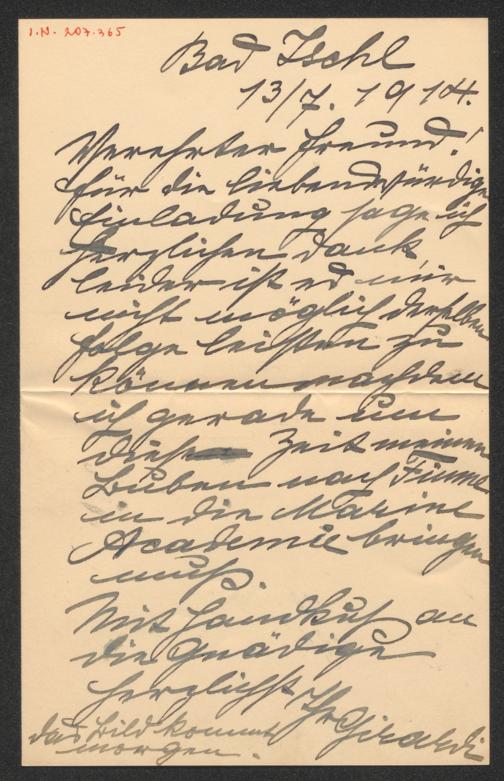 I.N. 207.365
Bad Ischl
13/7. 1914.
Verehrter Freund!
für die liebenswürdige
Einladung sage ich
herzlichen Dank,
leider ist es mir
nicht möglich derselben
folge leisten zu
können nachdem
ich gerade um
diese Zeit meinen
Buben nach Fiume
in die Marine
Academie bringen
muß.
Mit Handkuß an
die Gnädige
herzlichst Ihr Girardi
das Bild kommt
morgen.